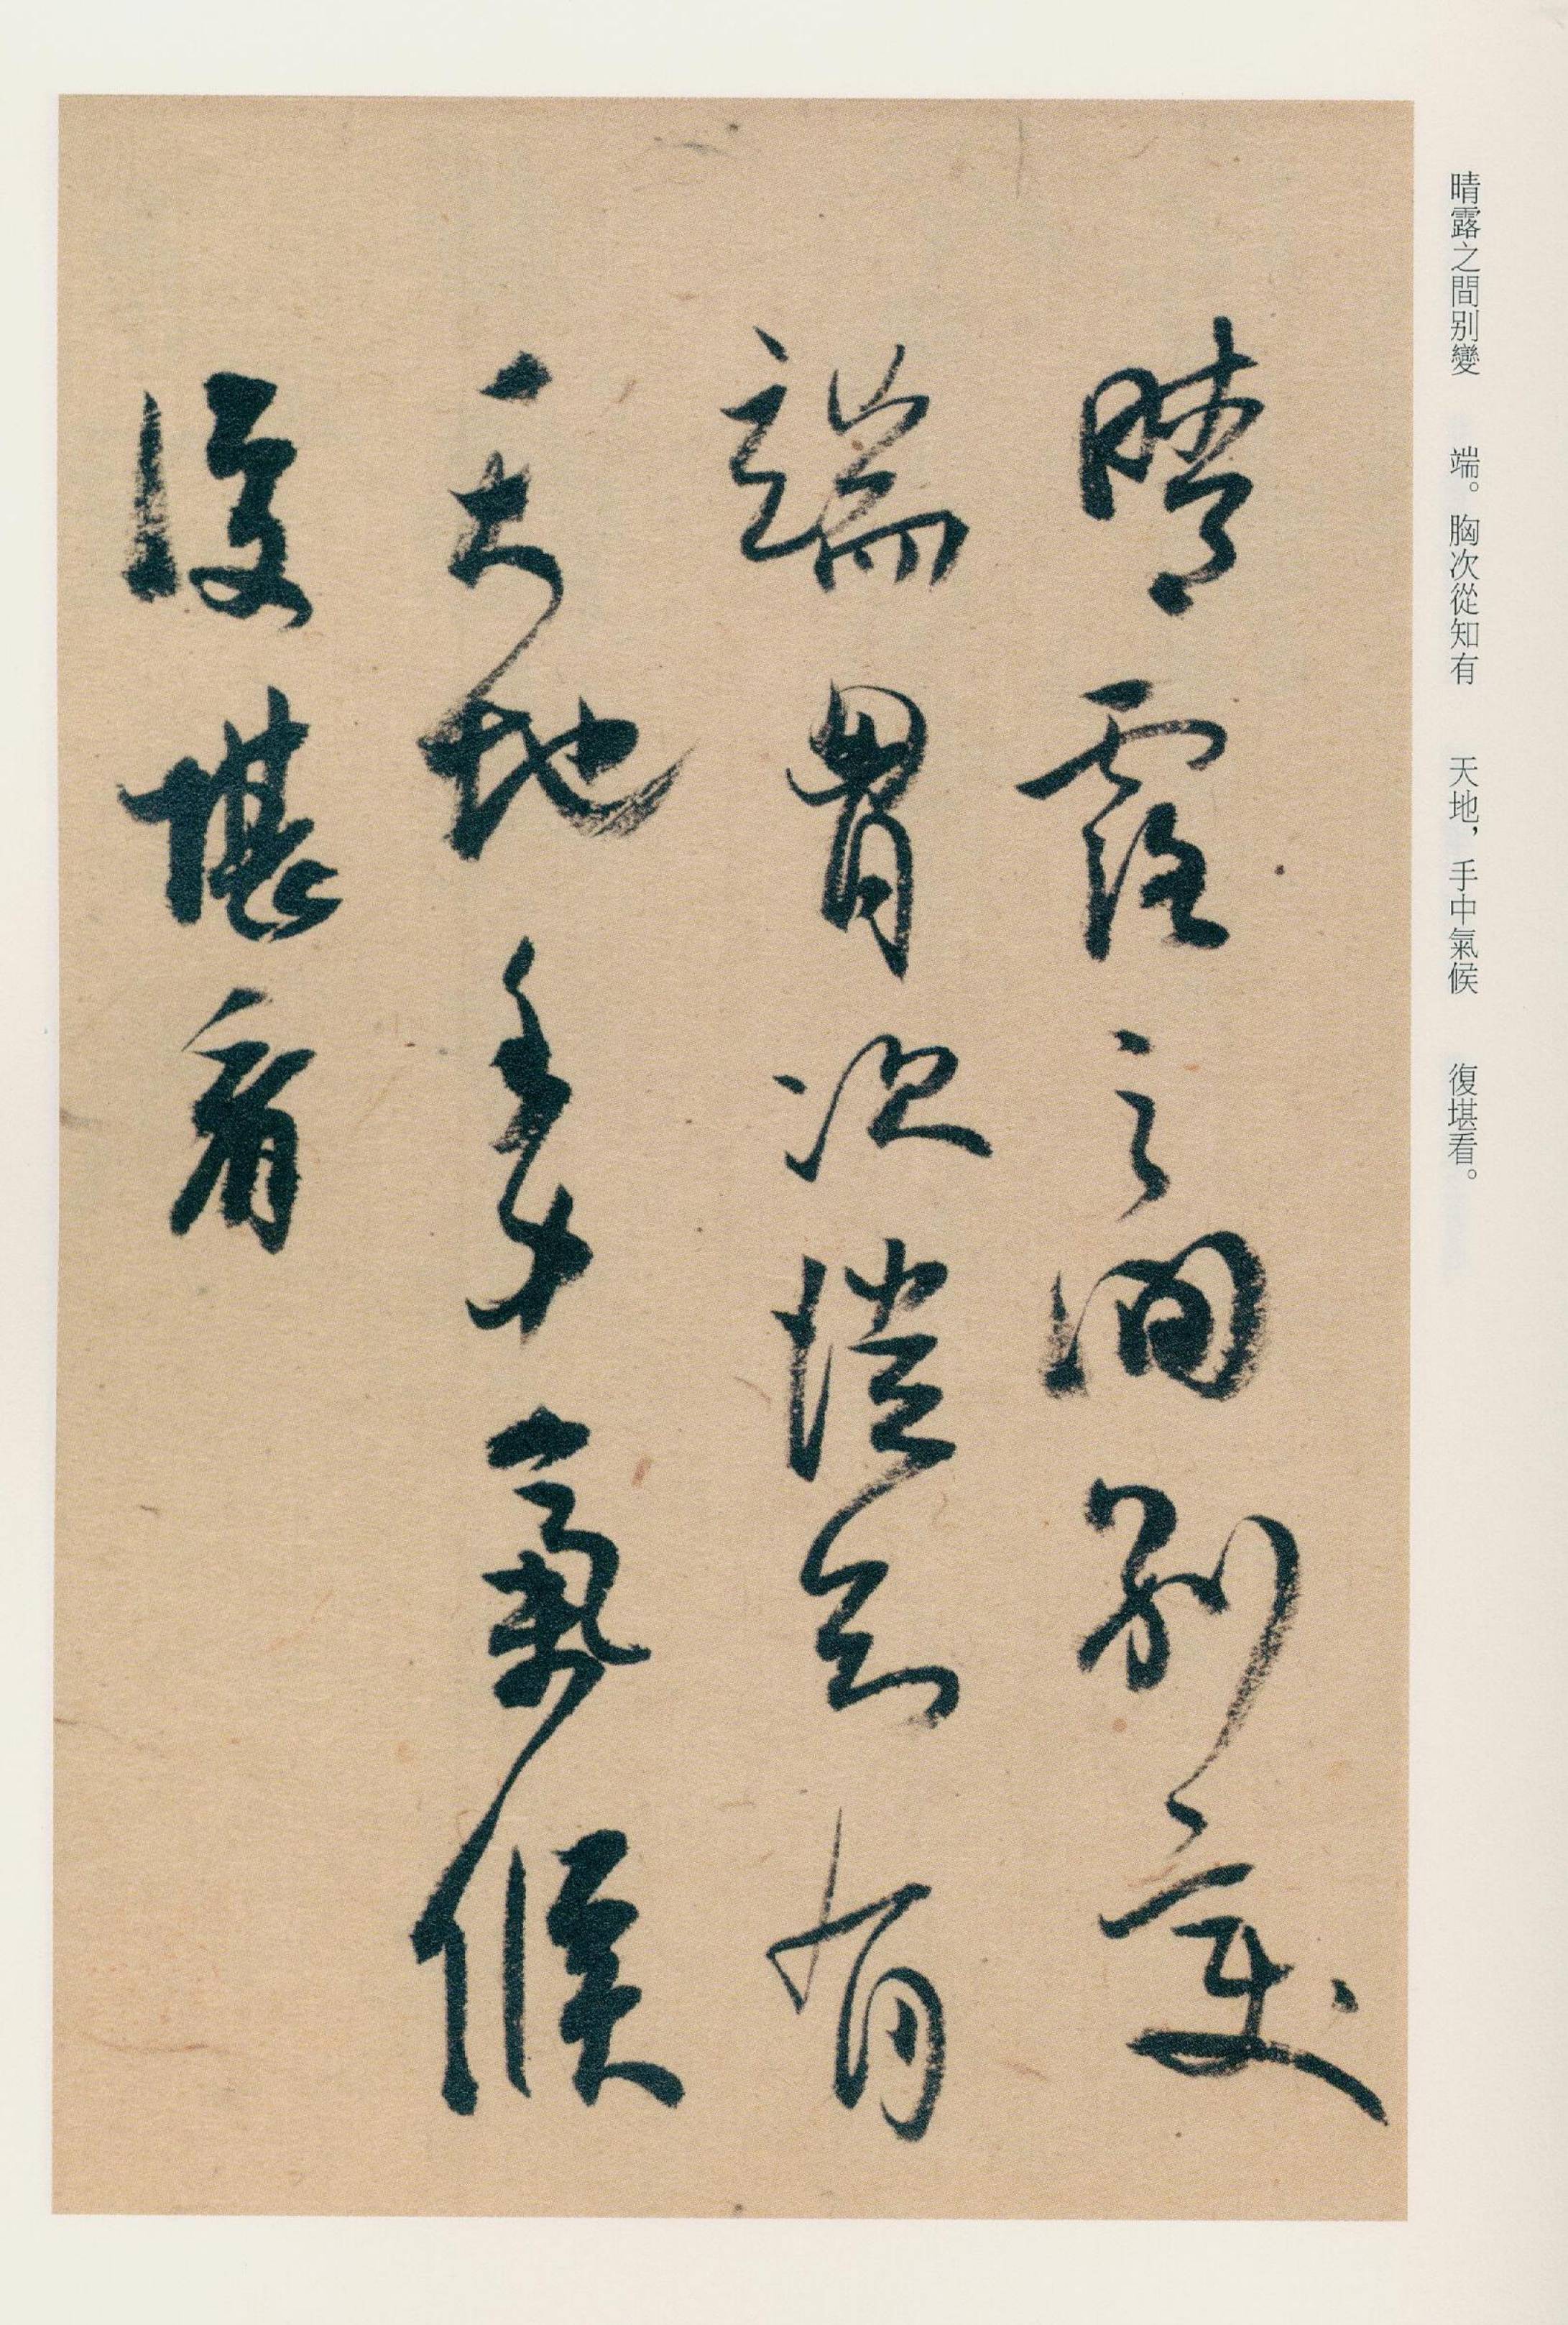 晴露之間别變　端。胸次從知有　天地，手中氣候　復堪看。
晴露之間别變
端胷次從知有
天地手中氣候
復堪看